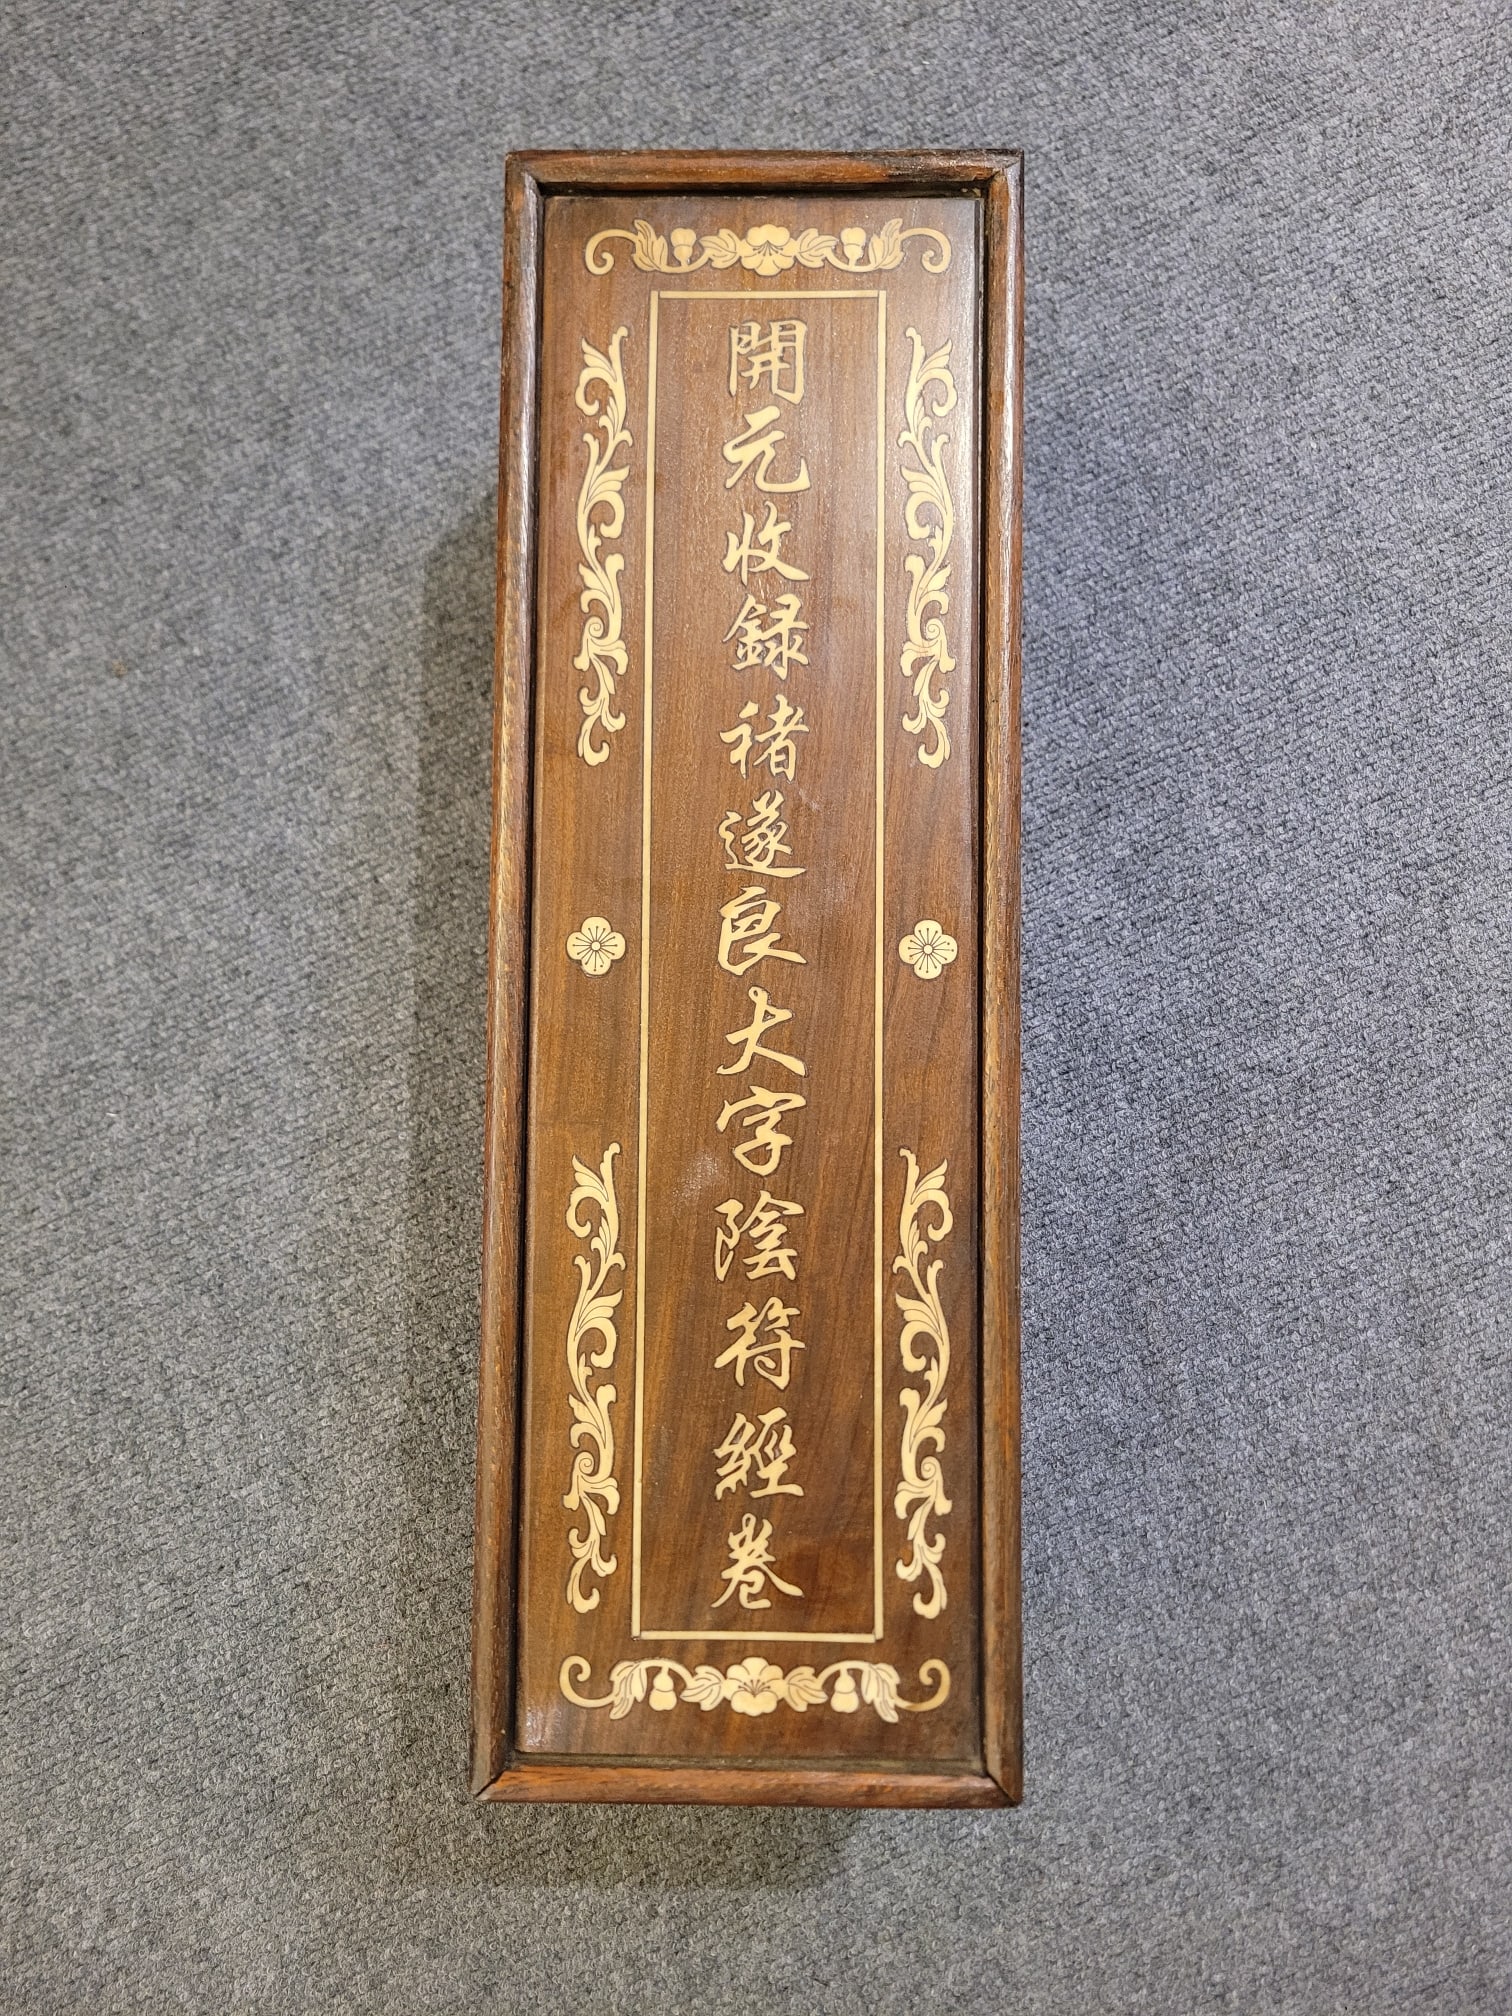 開元收録褚遂良大字陰符經卷